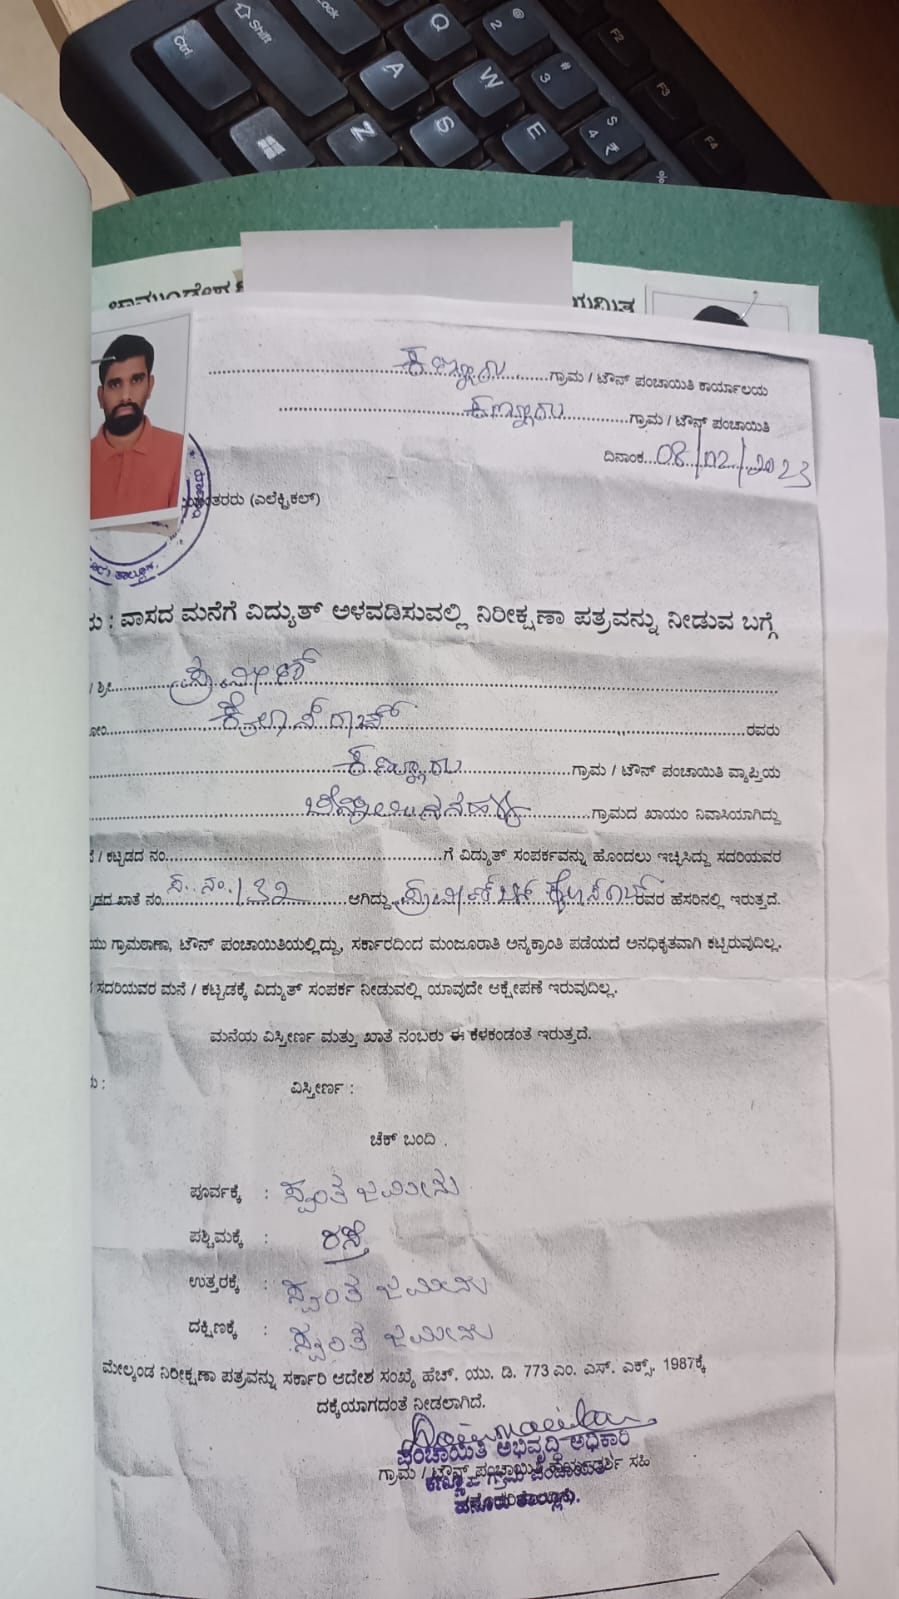 Ctrl
Shift
Lock
Q
@
2
F2
A
W
#
3
F3
Z
S
E
$
4
₹
F4
%
ಕಣ್ಣೂರು ಗ್ರಾಮ / ಟೌನ್ ಪಂಚಾಯಿತಿ ಕಾರ್ಯಾಲಯ
ಕಣ್ಣೂರು ಗ್ರಾಮ / ಟೌನ್ ಪಂಚಾಯಿತಿ
ದಿನಾಂಕ...08/02/2023
ಯಂತರರು (ಎಲೆಕ್ಟ್ರಿಕಲ್)
ತಾಲ್ಲೂಕು.
ು : ವಾಸದ ಮನೆಗೆ ವಿದ್ಯುತ್ ಅಳವಡಿಸುವಲ್ಲಿ ನಿರೀಕ್ಷಣಾ ಪತ್ರವನ್ನು ನೀಡುವ ಬಗ್ಗೆ
/ ಶ್ರೀ. ಪ್ರವೀಣ್
ಕೈಲಾಸ್ ರಾಜ್ ರವರು
ಕಣ್ಣೂರು ಗ್ರಾಮ / ಟೌನ್ ಪಂಚಾಯಿತಿ ವ್ಯಾಪ್ತಿಯ
ಗ್ರಾಮದ ಖಾಯಂ ನಿವಾಸಿಯಾಗಿದ್ದು
/ ಕಟ್ಟಡದ ನಂ. ಗೆ ವಿದ್ಯುತ್ ಸಂಪರ್ಕವನ್ನು ಹೊಂದಲು ಇಚ್ಛಿಸಿದ್ದು ಸದರಿಯವರ
ಡದ ಖಾತೆ ನಂ. ಸ. ನಂ. 132 ಆಗಿದ್ದು ಪ್ರವೀಣ್ ಬಿನ್ ಕೈಲಾಸ್ ರಾಜ್ ರವರ ಹೆಸರಿನಲ್ಲಿ ಇರುತ್ತದೆ.
ಯು ಗ್ರಾಮಠಾಣಾ, ಟೌನ್ ಪಂಚಾಯಿತಿಯಲ್ಲಿದ್ದು, ಸರ್ಕಾರದಿಂದ ಮಂಜೂರಾತಿ ಅನ್ಯಕ್ರಾಂತಿ ಪಡೆಯದೆ ಅನಧಿಕೃತವಾಗಿ ಕಟ್ಟಿರುವುದಿಲ್ಲ.
ಸದರಿಯವರ ಮನೆ / ಕಟ್ಟಡಕ್ಕೆ ವಿದ್ಯುತ್ ಸಂಪರ್ಕ ನೀಡುವಲ್ಲಿ ಯಾವುದೇ ಆಕ್ಷೇಪಣೆ ಇರುವುದಿಲ್ಲ.
ಮನೆಯ ವಿಸ್ತೀರ್ಣ ಮತ್ತು ಖಾತೆ ನಂಬರು ಈ ಕೆಳಕಂಡಂತೆ ಇರುತ್ತದೆ.
ು : ವಿಸ್ತೀರ್ಣ :
ಚೆಕ್ ಬಂದಿ .
ಪೂರ್ವಕ್ಕೆ : ಸ್ವಂತ ಜಮೀನು
ಪಶ್ಚಿಮಕ್ಕೆ : ರಸ್ತೆ
ಉತ್ತರಕ್ಕೆ : ಸ್ವಂತ ಜಮೀನು
ದಕ್ಷಿಣಕ್ಕೆ : ಸ್ವಂತ ಜಮೀನು
ಮೇಲ್ಕಂಡ ನಿರೀಕ್ಷಣಾ ಪತ್ರವನ್ನು ಸರ್ಕಾರಿ ಆದೇಶ ಸಂಖ್ಯೆ ಹೆಚ್. ಯು. ಡಿ. 773 ಎಂ. ಎಸ್. ಎಕ್ಸ್. 1987ಕ್ಕೆ
ದಕ್ಕೆಯಾಗದಂತೆ ನೀಡಲಾಗಿದೆ.
ಪಂಚಾಯಿತಿ ಅಭಿವೃದ್ಧಿ ಅಧಿಕಾರಿ
ಗ್ರಾಮ / ಟೌನ್ ಪಂಚಾಯಿತಿ ಕಾರ್ಯದರ್ಶಿ ಸಹಿ
ಗ್ರಾಮ ಪಂಚಾಯಿತಿ
ಹನೂರು ತಾಲ್ಲೂಕು.